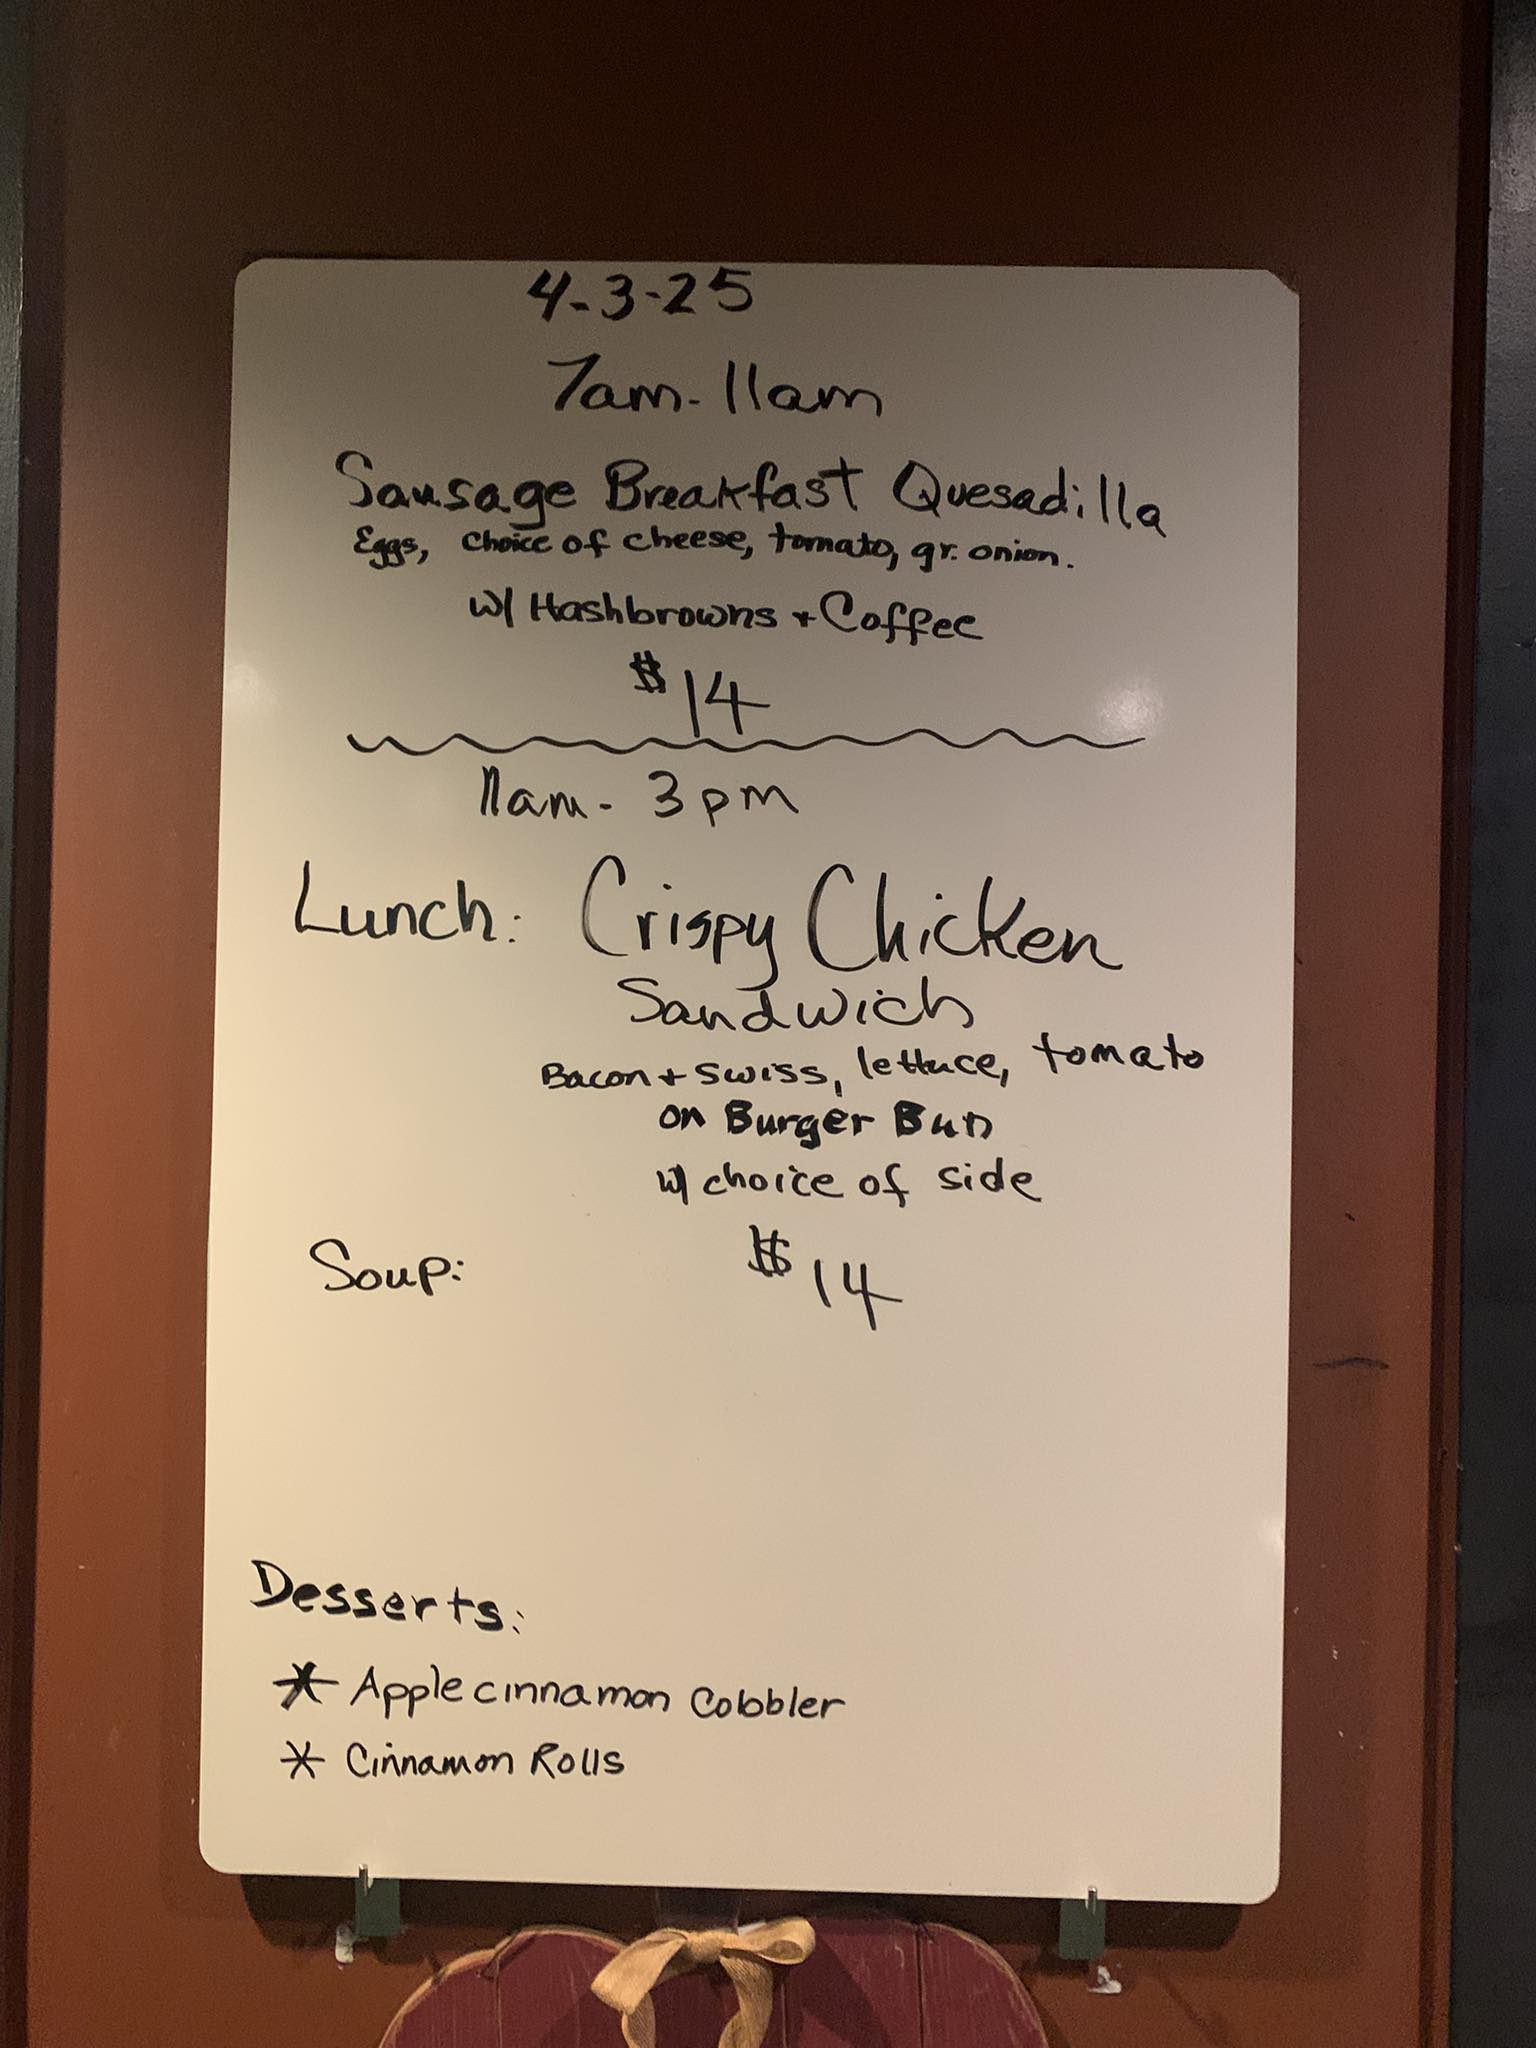 4-3-25
7am-11am
Sausage Breakfast Quesadilla
Eggs, choice of cheese, tomato, gr. onion.
w/ Hashbrowns + Coffee
$14
11am-3pm
Lunch: Crispy Chicken
Sandwich
Bacon + Swiss, lettuce, tomato
on Burger Bun
w/ choice of side
$14
Soup:
Desserts:
* Apple cinnamon Cobbler
* Cinnamon Rolls